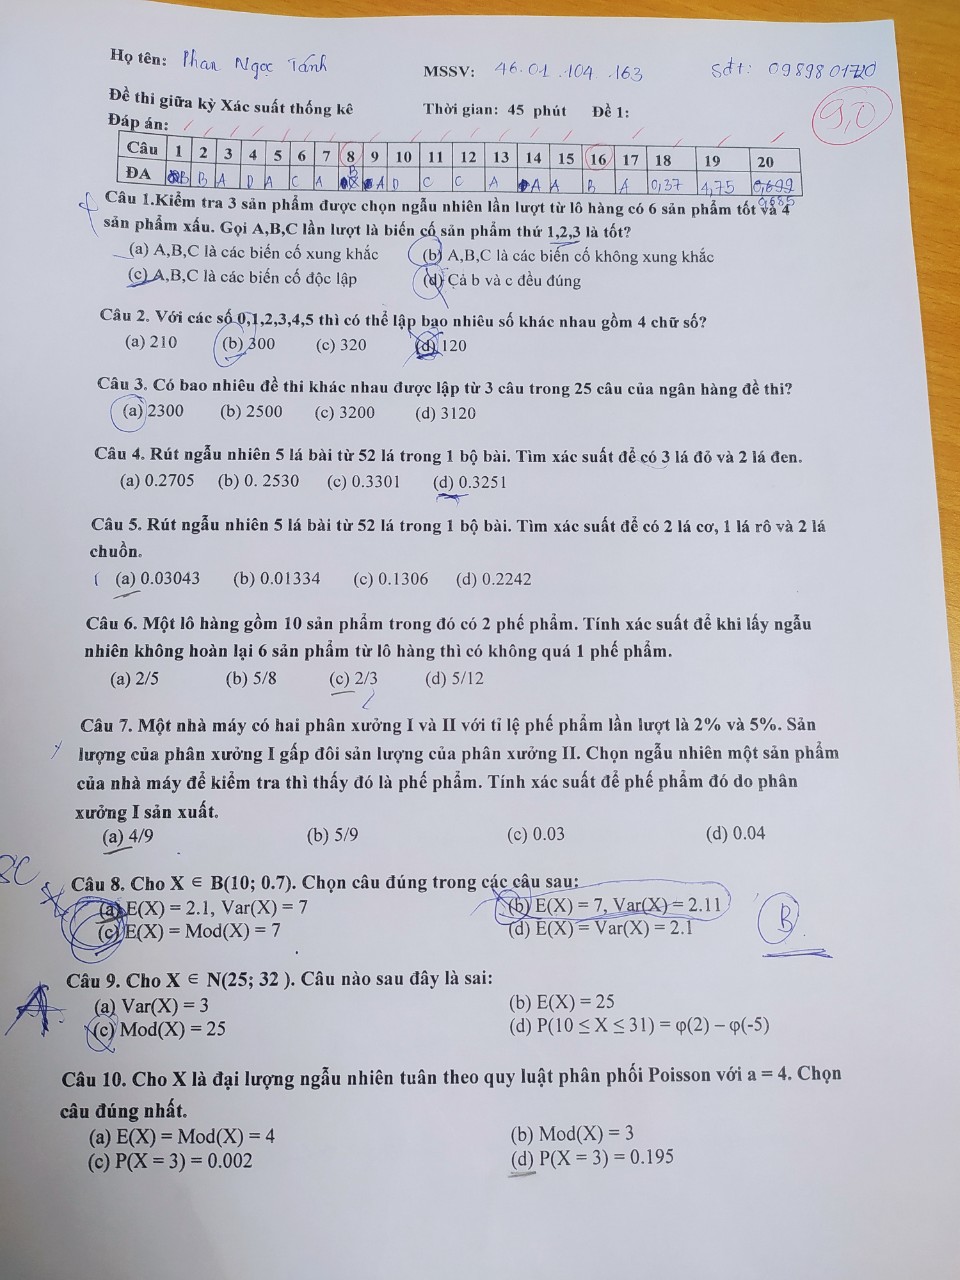 Họ tên: Phan Ngọc Tánh MSSV: 46.01.104.163 Sđt: 0989801720
Đề thi giữa kỳ Xác suất thống kê Thời gian: 45 phút Đề 1:
9,0
Đáp án:
Câu 1 2 3 4 5 6 7 8 9 10 11 12 13 14 15 16 17 18 19 20
ĐA B B A D A C A B A D C C A A A B A 0,37 4,75 0,692
0,685
Câu 1.Kiểm tra 3 sản phẩm được chọn ngẫu nhiên lần lượt từ lô hàng có 6 sản phẩm tốt và 4
sản phẩm xấu. Gọi A,B,C lần lượt là biến cố sản phẩm thứ 1,2,3 là tốt?
(a) A,B,C là các biến cố xung khắc (b) A,B,C là các biến cố không xung khắc
(c) A,B,C là các biến cố độc lập (d) Cả b và c đều đúng
Câu 2. Với các số 0,1,2,3,4,5 thì có thể lập bao nhiêu số khác nhau gồm 4 chữ số?
(a) 210 (b) 300 (c) 320 (d) 120
Câu 3. Có bao nhiêu đề thi khác nhau được lập từ 3 câu trong 25 câu của ngân hàng đề thi?
(a) 2300 (b) 2500 (c) 3200 (d) 3120
Câu 4. Rút ngẫu nhiên 5 lá bài từ 52 lá trong 1 bộ bài. Tìm xác suất để có 3 lá đỏ và 2 lá đen.
(a) 0.2705 (b) 0. 2530 (c) 0.3301 (d) 0.3251
Câu 5. Rút ngẫu nhiên 5 lá bài từ 52 lá trong 1 bộ bài. Tìm xác suất để có 2 lá cơ, 1 lá rô và 2 lá
chuồn.
(a) 0.03043 (b) 0.01334 (c) 0.1306 (d) 0.2242
Câu 6. Một lô hàng gồm 10 sản phẩm trong đó có 2 phế phẩm. Tính xác suất để khi lấy ngẫu
nhiên không hoàn lại 6 sản phẩm từ lô hàng thì có không quá 1 phế phẩm.
(a) 2/5 (b) 5/8 (c) 2/3 (d) 5/12
Câu 7. Một nhà máy có hai phân xưởng I và II với tỉ lệ phế phẩm lần lượt là 2% và 5%. Sản
lượng của phân xưởng I gấp đôi sản lượng của phân xưởng II. Chọn ngẫu nhiên một sản phẩm
của nhà máy để kiểm tra thì thấy đó là phế phẩm. Tính xác suất để phế phẩm đó do phân
xưởng I sản xuất.
(a) 4/9 (b) 5/9 (c) 0.03 (d) 0.04
Câu 8. Cho X ∈ B(10; 0.7). Chọn câu đúng trong các câu sau:
(a) E(X) = 2.1, Var(X) = 7 (b) E(X) = 7, Var(X) = 2.11
(c) E(X) = Mod(X) = 7 (d) E(X) = Var(X) = 2.1
B
Câu 9. Cho X ∈ N(25; 32 ). Câu nào sau đây là sai:
(a) Var(X) = 3 (b) E(X) = 25
A.
(c) Mod(X) = 25 (d) P(10 ≤ X ≤ 31) = φ(2) – φ(-5)
Câu 10. Cho X là đại lượng ngẫu nhiên tuân theo quy luật phân phối Poisson với a = 4. Chọn
câu đúng nhất.
(a) E(X) = Mod(X) = 4 (b) Mod(X) = 3
(c) P(X = 3) = 0.002 (d) P(X = 3) = 0.195